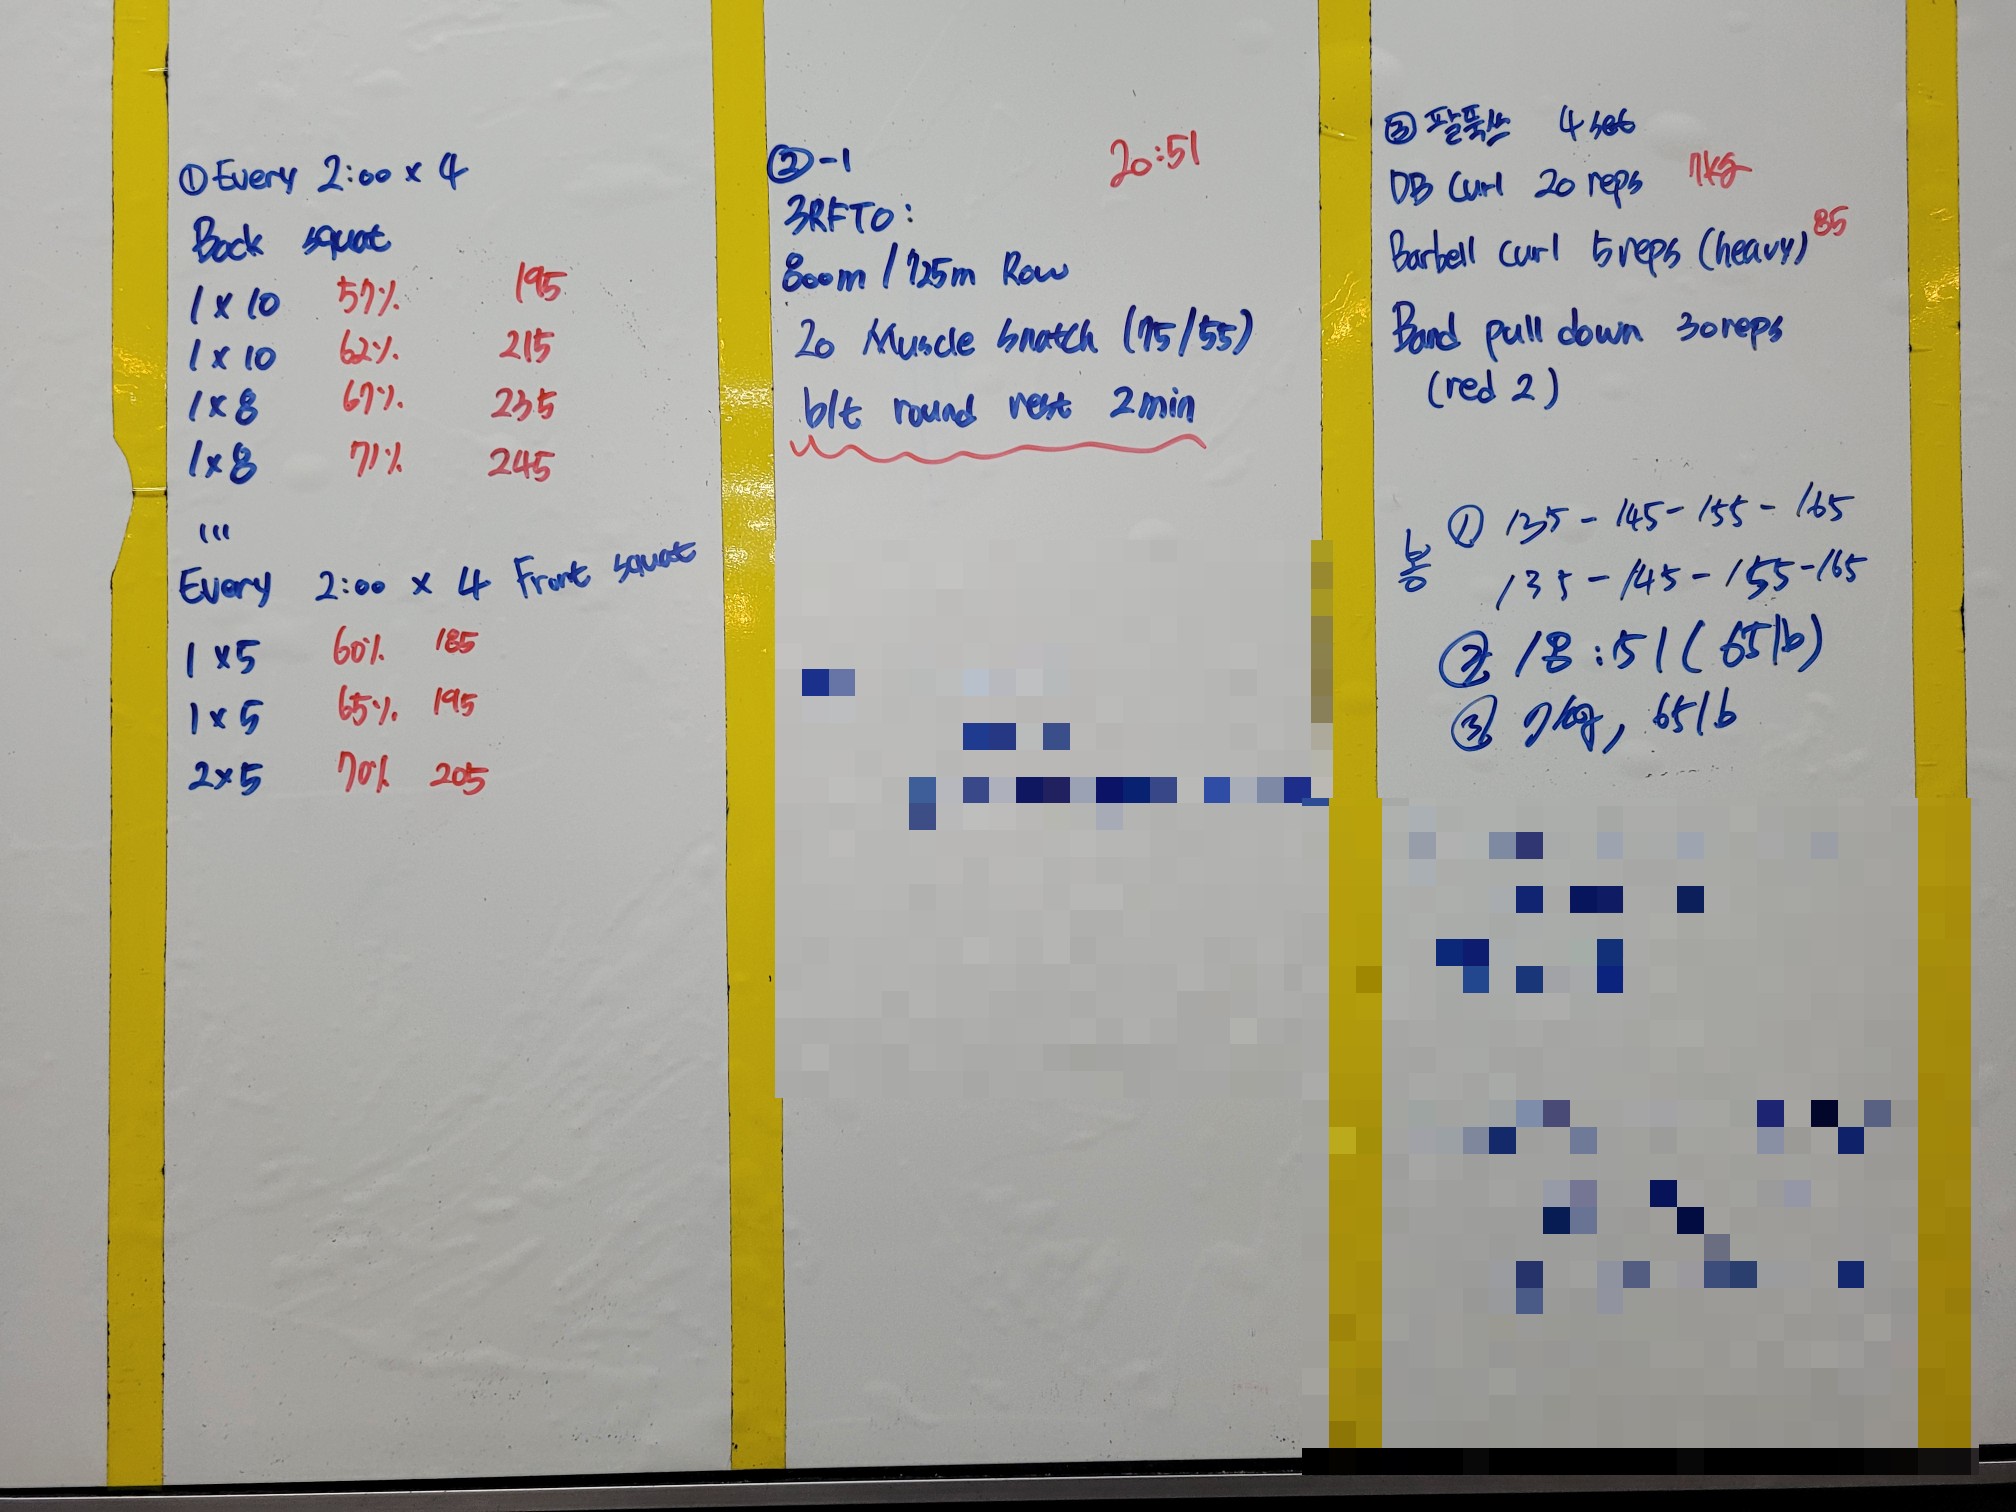 ① Every 2:00 x 4
Back squat
1 x 10 57% 195
1 x 10 62% 215
1 x 8 67% 235
1 x 8 71% 245
Every 2:00 x 4 Front squat
1 x 5 60% 185
1 x 5 65% 195
2 x 5 70% 205
②-1 20:51
3RFTO:
800m / 725m Row
20 Muscle snatch (75/55)
b/t round rest 2min
③ 팔뚝쓰 4 set
DB Curl 20 reps 7kg
Barbell curl 5 reps (heavy) 85
Band pull down 30 reps
(red 2)
봉 ① 135 - 145 - 155 - 165
135 - 145 - 155 - 165
② 18:51 (65lb)
③ 7kg, 65lb